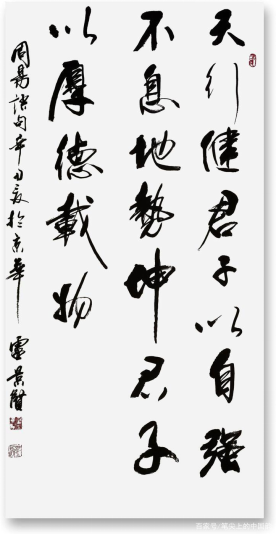 天行健君子以自强
不息地勢坤君子
以厚德載物
周易語句辛丑夏於京華
景賢
百家号/笔尖上的中国